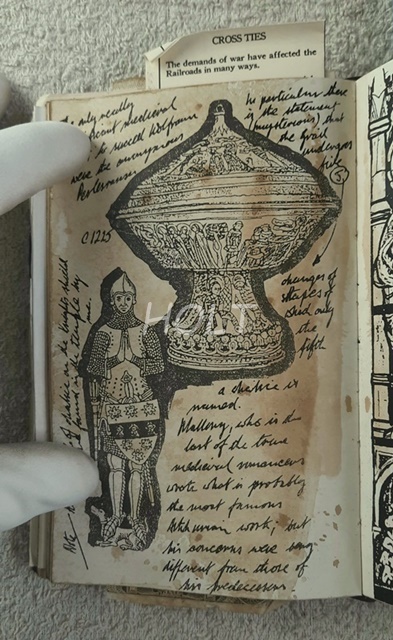 CROSS TIES
The demands of war have affected the
Railroads in many ways.
only really
medieval
to succeed Wolfram
were the anonymous
In particular there
is the statement
(mysterious) that
the Grail
undergoes
five
5
changes of
shapes of
only
the
fifth
C 1225
a chalice is
named.
Mallory, who is the
last of the true
medieval romancers
wrote what is probably
the most famous
Arthurian work; but
his concerns were very
different from those of
his predecessors!
chalice on the knights shield
found in the temple by
HOLT